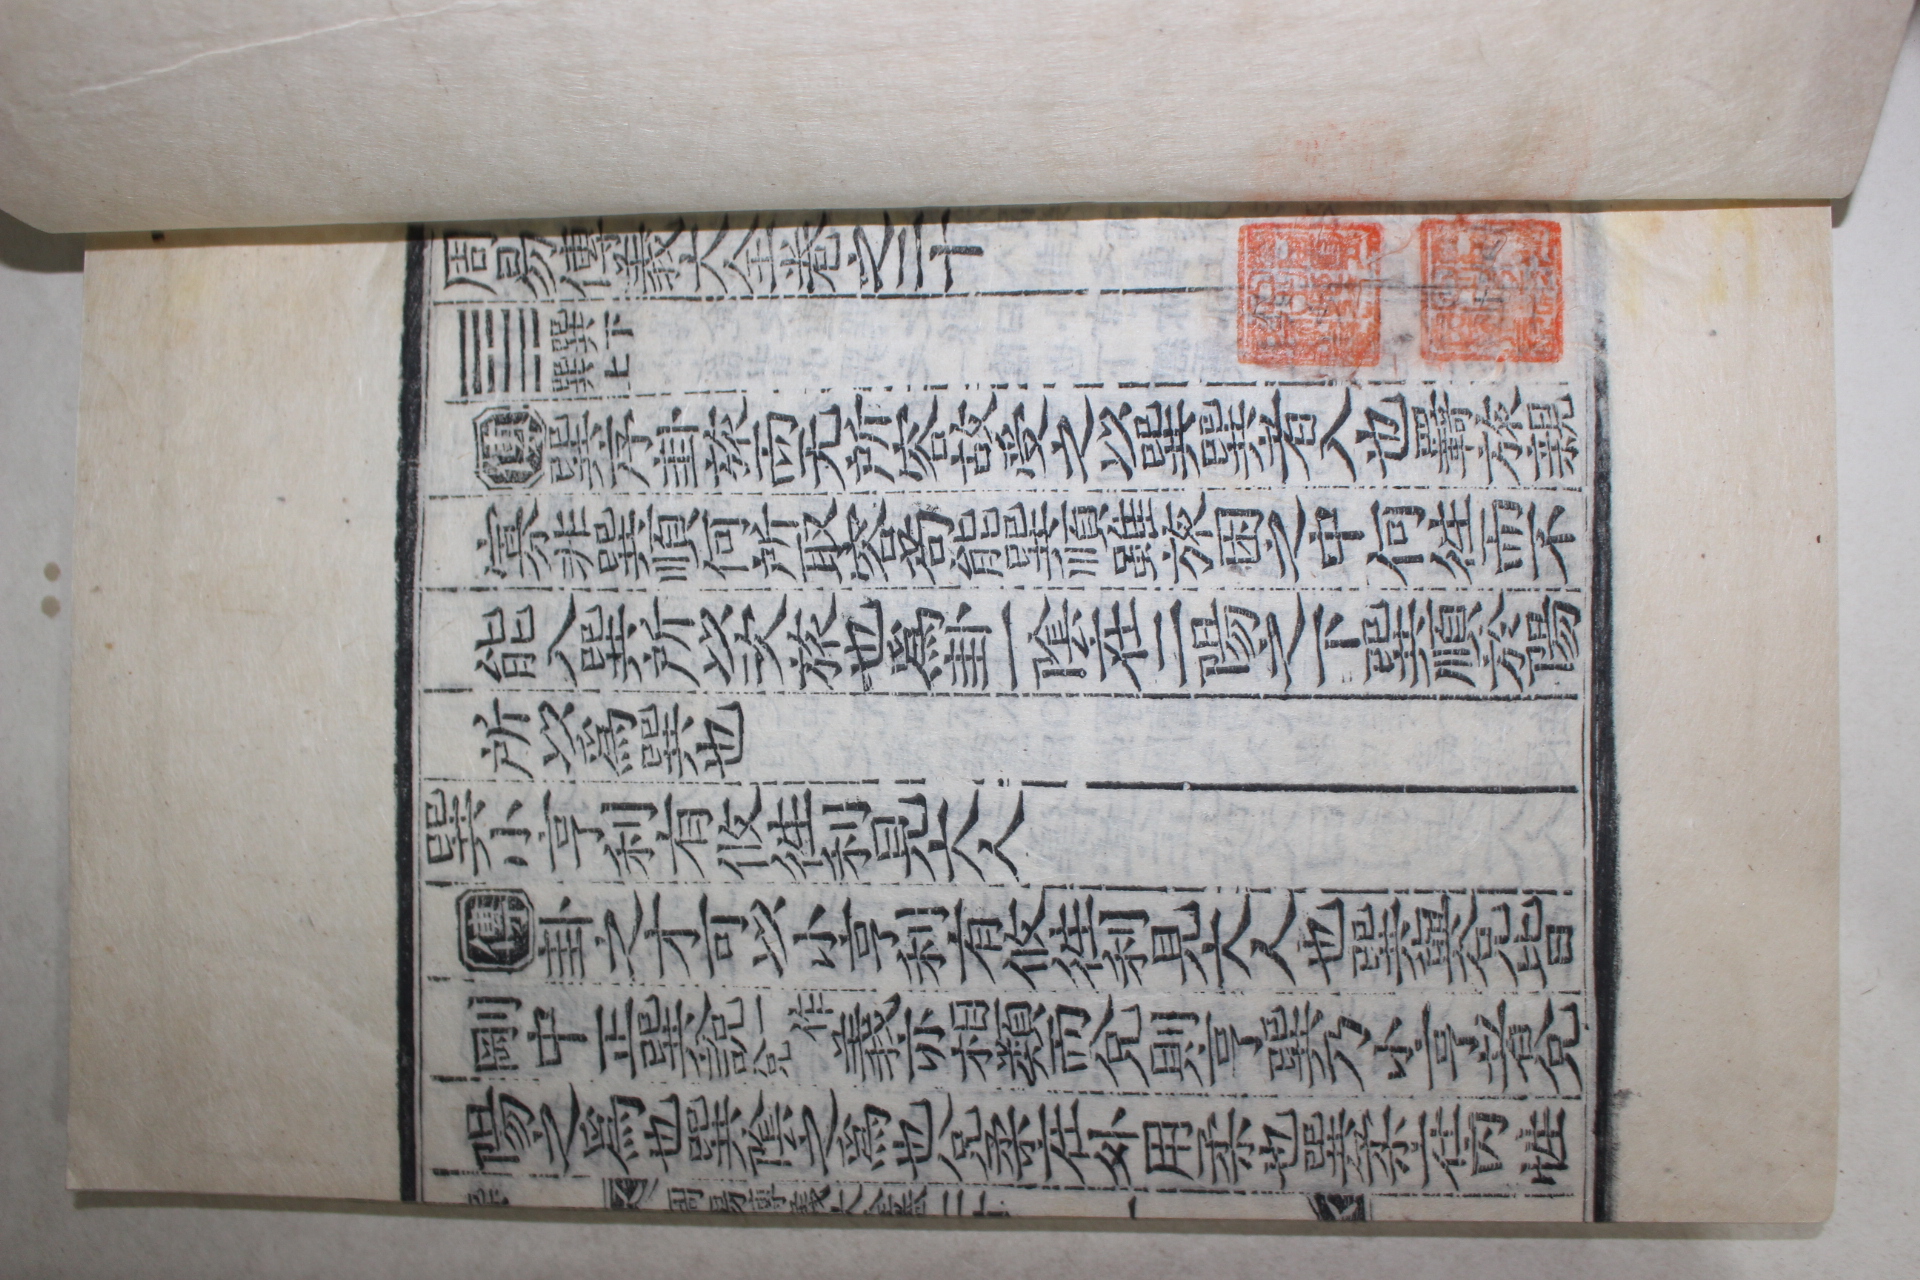 周易傳義大全卷之二十
巽下
巽上
傳巽序卦旅而无所容故受之以巽巽者入也羈旅親
寡非巽順何所取容苟能巽順雖旅困之中何往而不
能入巽所以次旅也爲卦一陰在二陽之下巽順於陽
所以爲巽也
巽小亨利有攸往利見大人
傳卦之才可以小亨利有攸往利見大人也巽與兌皆
剛中正巽說一作兌義亦相類而兌則亨巽乃小亨者兌
陽之爲也巽陰之爲也兌柔在外用柔也巽柔在內性
周易傳義大全卷二十 一